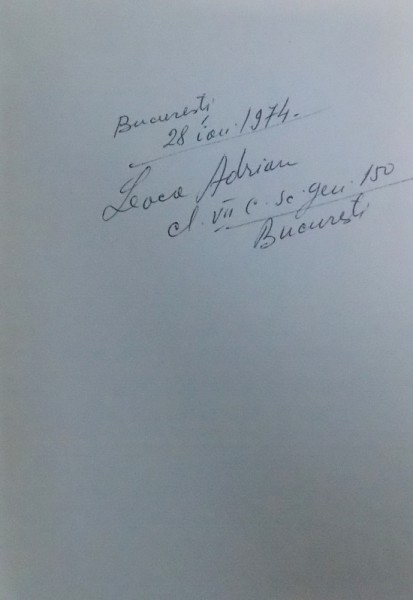 București
28 ian. 1974.
Leoca Adrian
cl. VII C. Sc. gen. 150
București